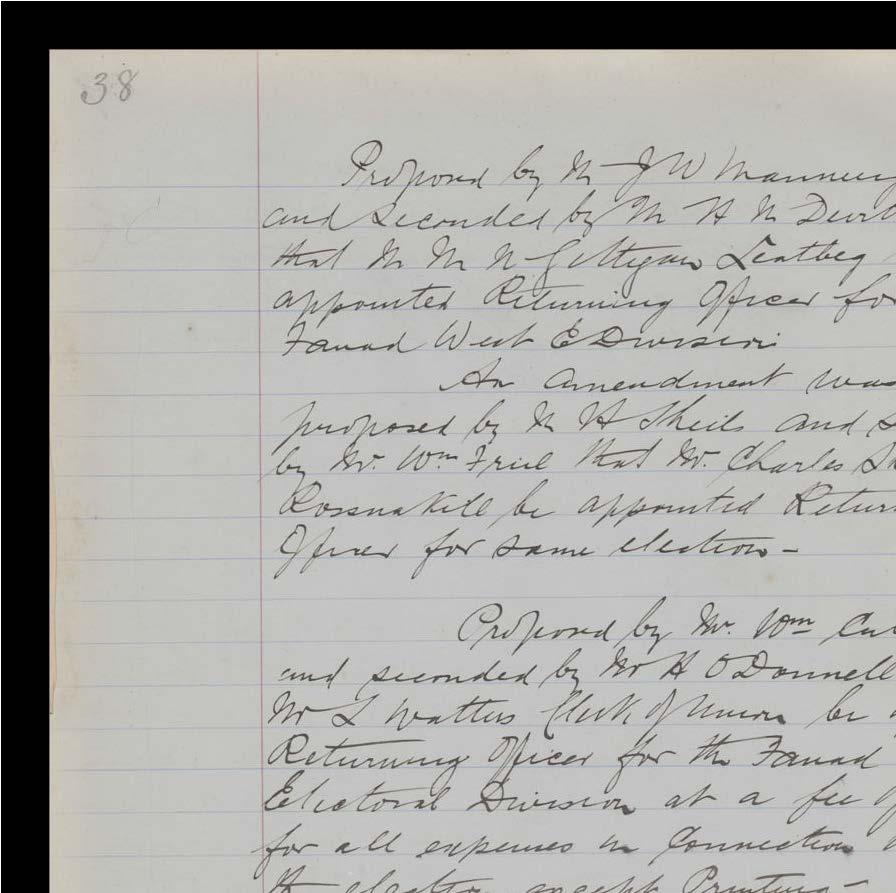 38
Proposed by Mr J W Manning
and seconded by Mr H M Devit
that Mr M N Gettigan Leatbeg
appointed Returning Officer for
Fanad West E Division
An amendment was
proposed by Mr H Sheils and
by Mr. Wm Friel that Mr. Charles
Rosnakill be appointed Return
Officer for same election -
Proposed by Mr. Wm
and seconded by Mr H O'Donnell
Mr L Watters Clerk of Union be
Returning Officer for the Fanad
Electoral Division at a fee of
for all expenses in connection
the election except Printing -